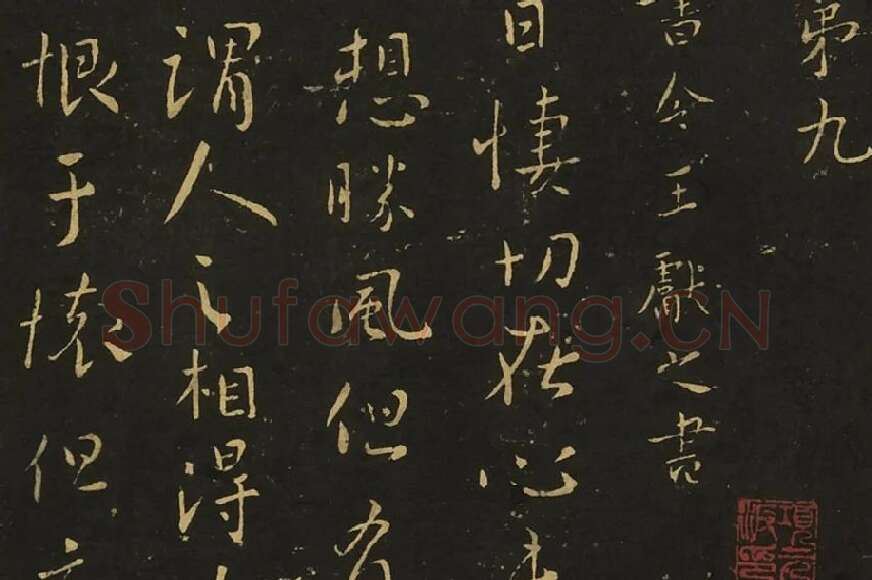 弟九
書令王獻之書
日悽切在心未
想勝風但有
謂人之相得
恨于懷但
項元
Shufawang.CN